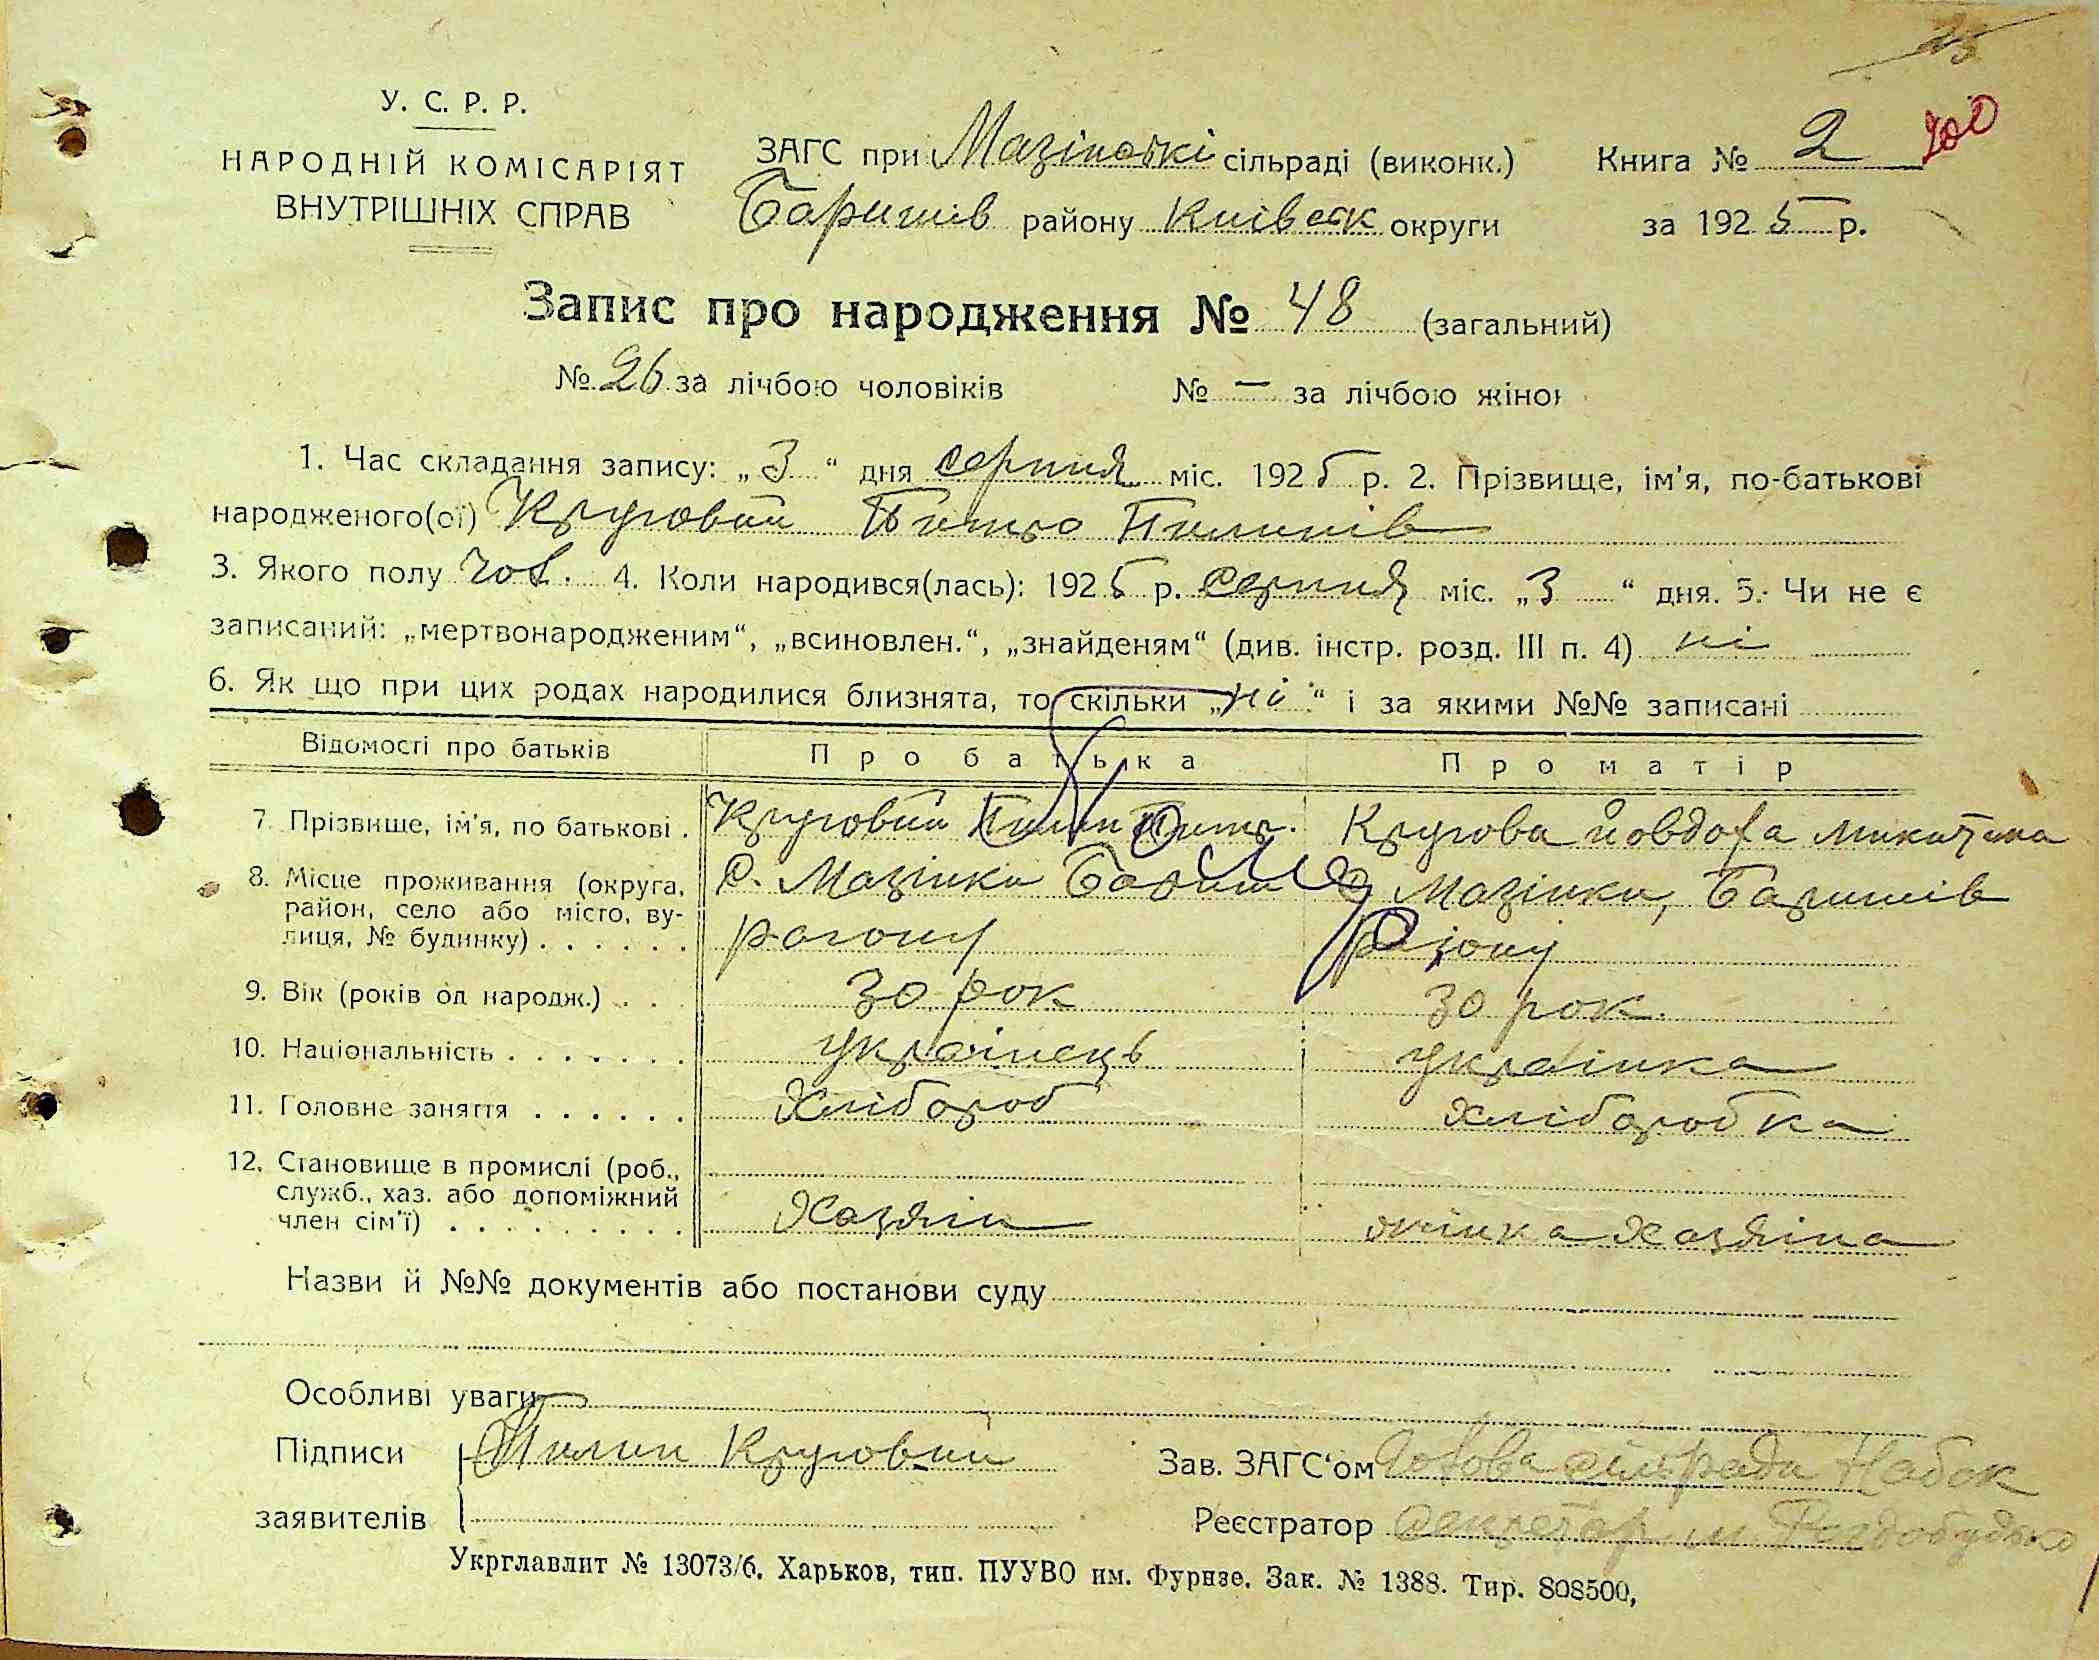 25
У. С. Р. Р.
НАРОДНІЙ КОМІСАРІЯТ
ВНУТРІШНІХ СПРАВ
ЗАГС при Мазінській сільраді (виконк.)
Баришів району Київськ округи
Книга № 2 200
за 1925 р.
Запис про народження № 48 (загальний)
№ 26 за лічбою чоловіків № — за лічбою жінок
1. Час складання запису: „3“ дня серпня міс. 1925 р. 2. Прізвище, ім'я, по-батькові
народженого(ої) Круговий Питро Пилипів
3. Якого полу чов. 4. Коли народився(лась): 1925 р. серпня міс. „3“ дня. 5. Чи не є
записаний: „мертвонародженим“, „всиновлен.“, „знайденям“ (див. інстр. розд. III п. 4) ні
6. Як що при цих родах народилися близнята, то скільки „ні“ і за якими №№ записані
Відомості про батьків Про батька Про матір
7. Прізвище, ім'я, по батькові . Круговий Пилип Питр. Кругова Йовдоха Микитина
8. Місце проживання (округа, район, село або місто, вулиця, № будинку) . . . . . . С. Мазінки Бариш району С. Мазінки, Баришів району
9. Вік (років од народж.) . . 30 рок 30 рок.
10. Національність . . . . . . . українець українка
11. Головне заняття . . . . . . хлібороб хліборобка
12. Становище в промислі (роб., служб., хаз. або допоміжний член сім'ї) . . . . . . . . . Хазяїн жінка хазяїна
Назви й №№ документів або постанови суду
Особливі уваги
Підписи Пилип Круговий
заявителів
Зав. ЗАГС'ом Голова сільради Набок
Реєстратор Секретар
Укрглавлит № 13073/б. Харьков, тип. ПУУВО им. Фрунзе. Зак. № 1388. Тир. 808500,